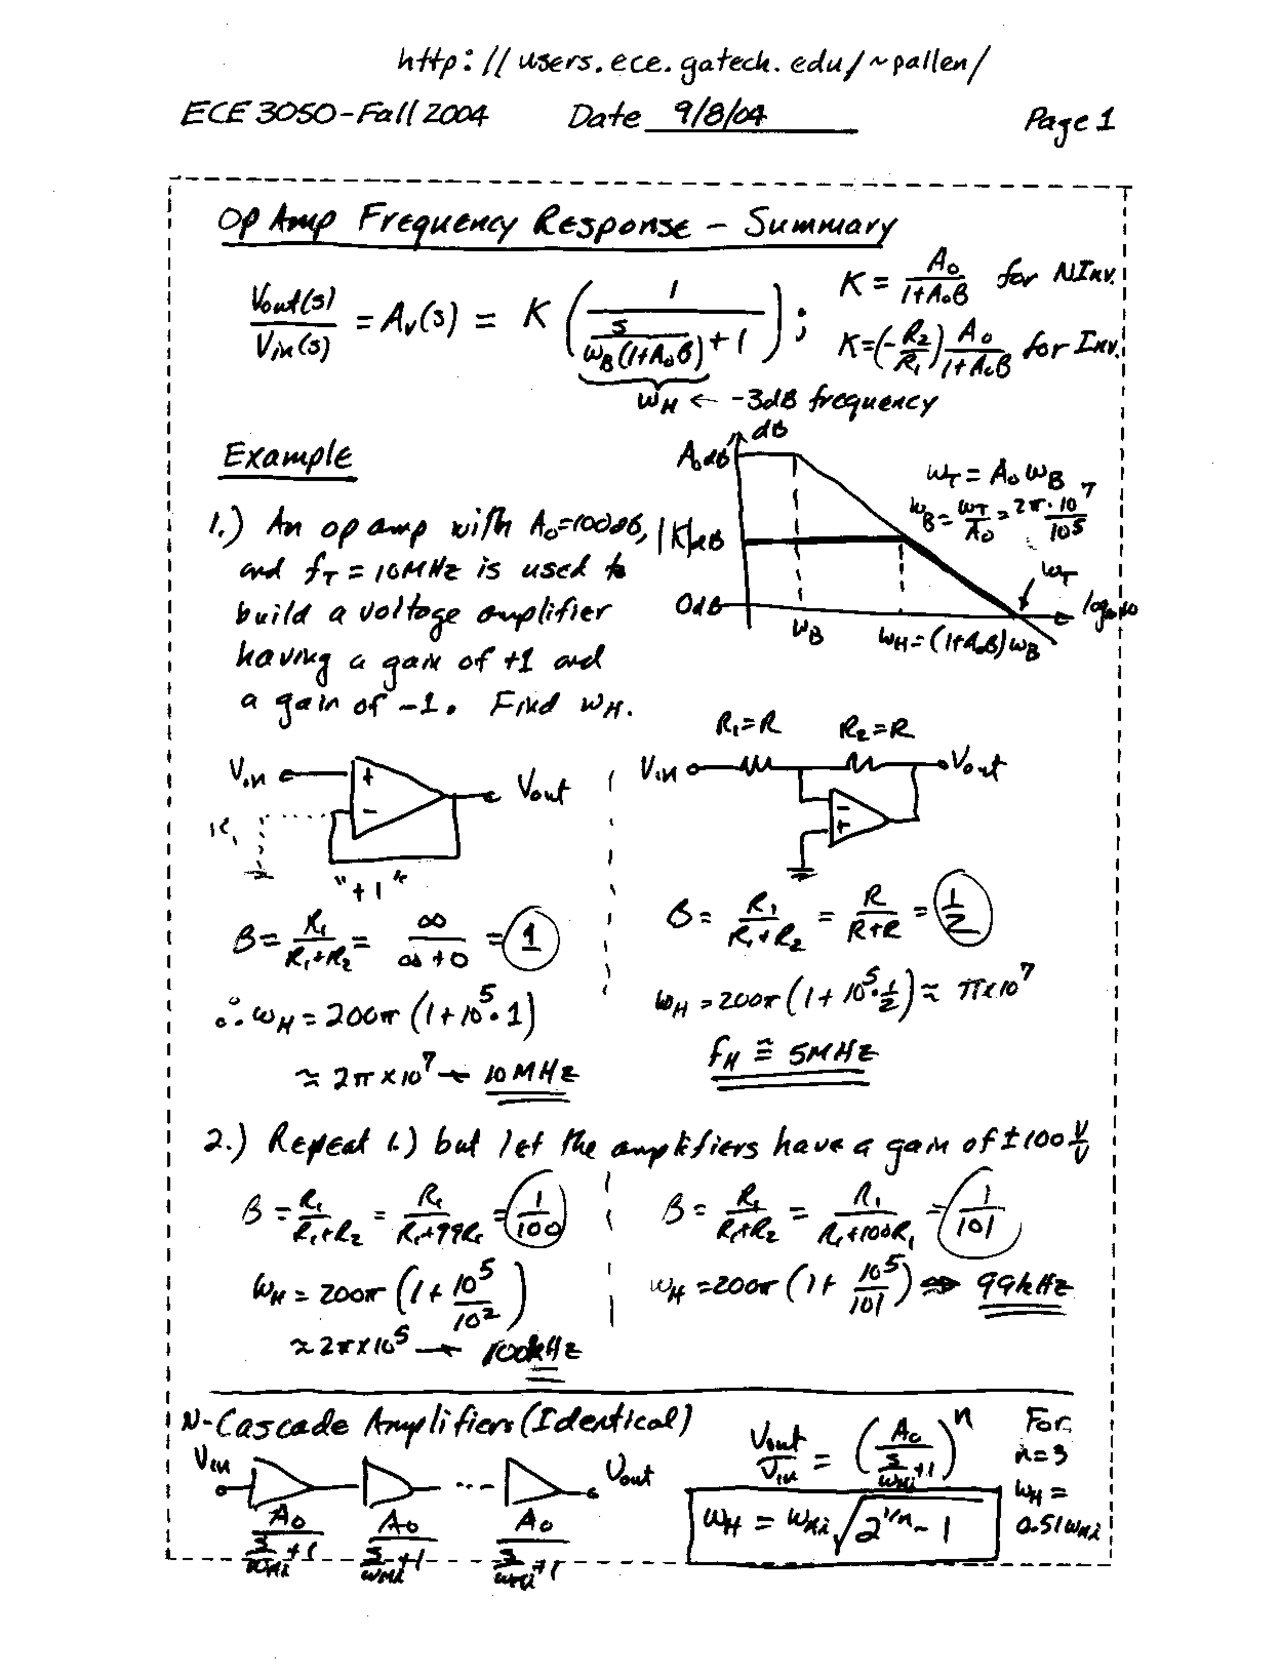 http://users.ece.gatech.edu/~pallen/
ECE 3050-Fall 2004 Date 9/8/04 Page 1
Op Amp Frequency Response - Summary
Vout(s)/Vin(s) = Av(s) = K (1/(s/(ωB(1+A0β)) + 1)); K = A0/(1+A0β) for NInv.
K=(-R2/R1) A0/(1+A0β) for Inv.
ωH ← -3dB frequency
Example
dB
A0dB
ωT = A0ωB
ωB = ωT/A0 = 2π·10^7/10^5
|K|dB
0dB
ωB
ωH=(1+A0β)ωB
ωT
log10ω
1.) An op amp with A0=100dB,
and fT = 10MHz is used to
build a voltage amplifier
having a gain of +1 and
a gain of -1. Find ωH.
Vin + - Vout
R1
"+1"
R1=R R2=R
Vin Vout
- +
β = R1/(R1+R2) = ∞/(∞+0) = 1
∴ ωH = 200π (1+10^5·1)
≈ 2π×10^7 → 10MHz
β = R1/(R1+R2) = R/(R+R) = 1/2
ωH = 200π(1+10^5·1/2) ≈ π×10^7
fH ≅ 5MHz
2.) Repeat 1.) but let the amplifiers have a gain of ±100 V/V
β = R1/(R1+R2) = R1/(R1+99R1) = 1/100
ωH = 200π (1+10^5/10^2)
≈ 2π×10^5 → 100kHz
β = R1/(R1+R2) = R1/(R1+100R1) = 1/101
ωH = 200π (1+10^5/101) ⇒ 99kHz
N-Cascade Amplifiers (Identical)
Vin ... Vout
A0/(s/ωHi+1) A0/(s/ωHi+1) A0/(s/ωHi+1)
Vout/Vin = (A0/(s/ωHi+1))^n
ωH = ωHi √(2^(1/n) - 1)
For
n=3
ωH =
0.51ωHi